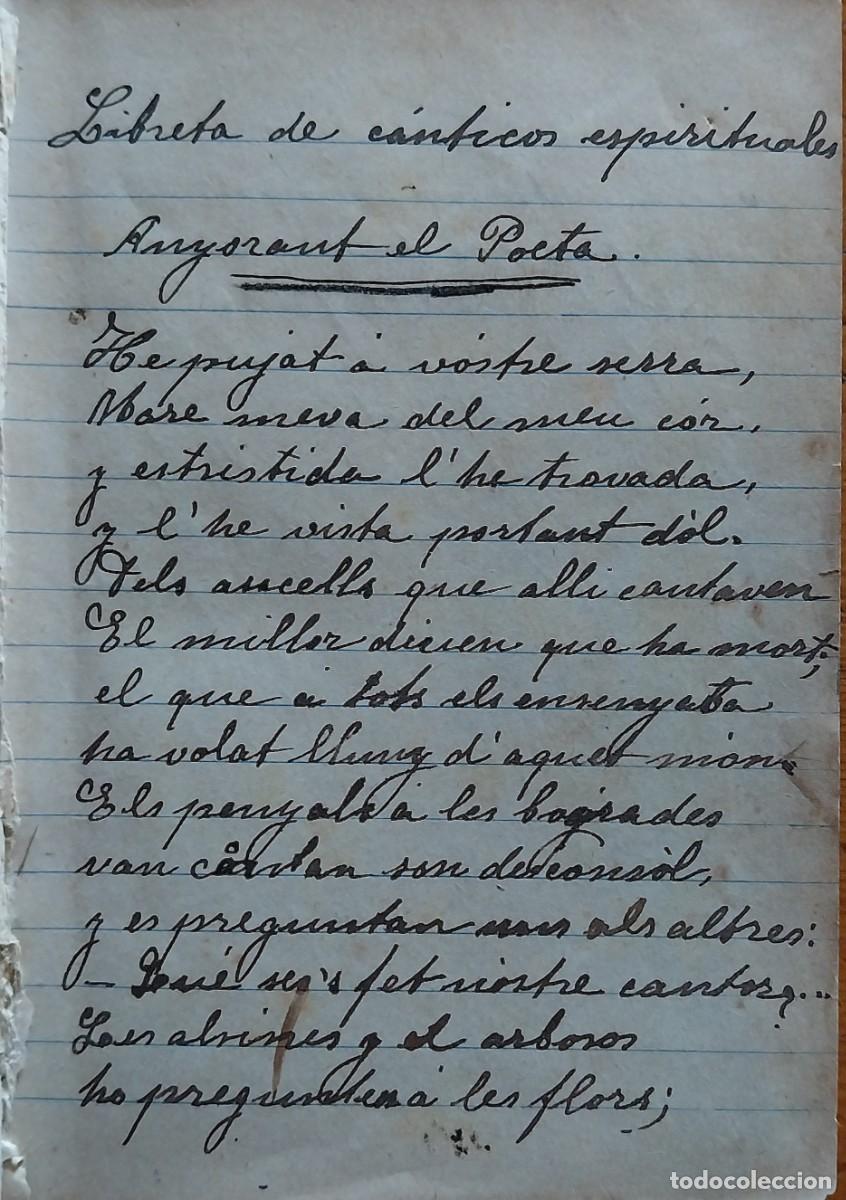 Libreta de cánticos espirituales
Anyorant el Poeta.
He pujat á vòstre serra,
Mare meva del meu cór,
y estristida l'he trovada,
y l'he vista portant dòl.
Dels aucells que alli cantaven
El millor diuen que ha mort;
el que á tots els ensenyaba
ha volat lluny d'aquet món.
Els penyals á les boyrades
van cantan son desconsòl,
y es preguntan uns als altres:
— Qué s'es fet nòstre cantor?...
Les alsines y el arbosos
ho pregunten á les flors;
todocoleccion